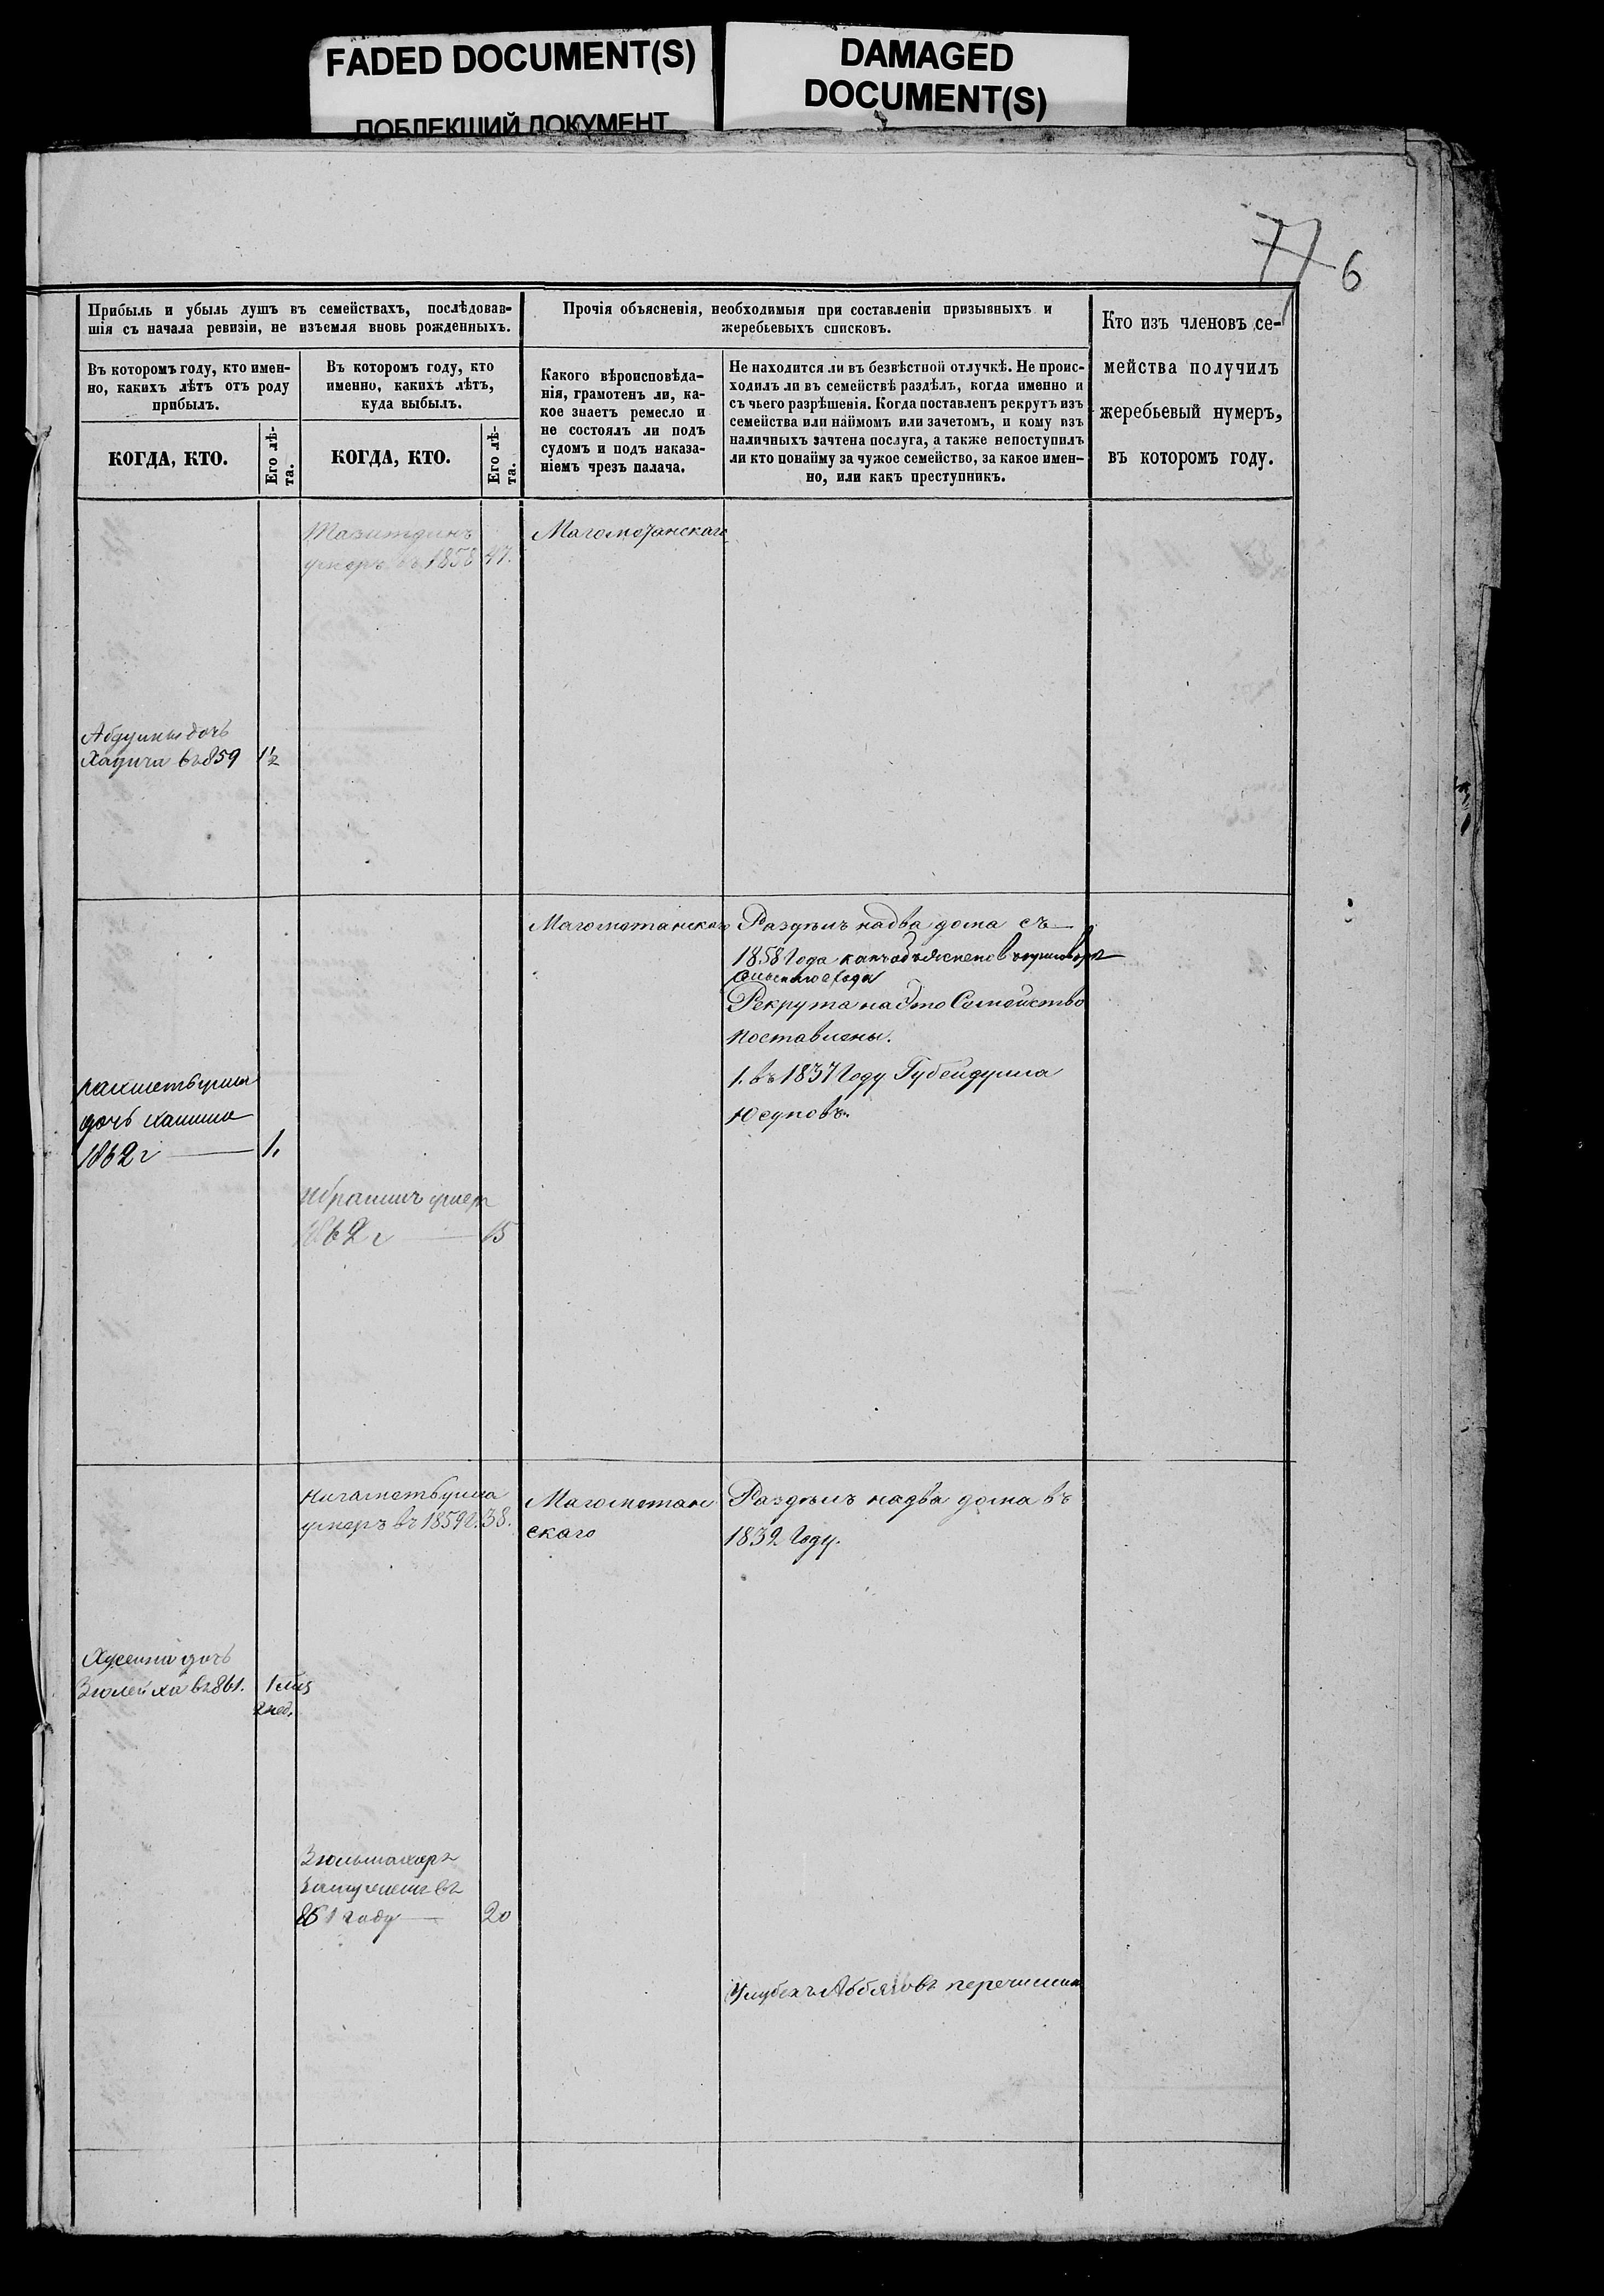 FADED DOCUMENT(S)
ПОБЛЕКШИЙ ДОКУМЕНТ
DAMAGED
DOCUMENT(S)
77
6
Прибыль и убыль душъ въ семействахъ, послѣдовав-
шія съ начала ревизіи, не изъемля вновь рожденныхъ.
Въ которомъ году, кто имен-
но, какихъ лѣтъ отъ роду
прибылъ.
Въ которомъ году, кто
именно, какихъ лѣтъ,
куда выбылъ.
КОГДА, КТО.
Его лѣ-
та.
КОГДА, КТО.
Его лѣ-
та.
Прочія объясненія, необходимыя при составленіи призывныхъ и
жеребьевыхъ списковъ.
Какого вѣроисповѣда-
нія, грамотенъ ли, ка-
кое знаетъ ремесло и
не состоялъ ли подъ
судомъ и подъ наказа-
ніемъ чрезъ палача.
Не находится ли въ безвѣстной отлучкѣ. Не проис-
ходилъ ли въ семействѣ раздѣлъ, когда именно и
съ чьего разрѣшенія. Когда поставленъ рекрутъ изъ
семейства или наймомъ или зачетомъ, и кому изъ
наличныхъ зачтена послуга, а также непоступилъ
ли кто понайму за чужое семейство, за какое имен-
но, или какъ преступникъ.
Кто изъ членовъ се-
мейства получилъ
жеребьевый нумеръ,
въ которомъ году.
умеръ въ 1858 47.
Магометанскаго
дочь
въ 859 1½
Магометанскаго
Раздѣлъ надва дома съ
1858 Года какъ объяснено в
Рекрута на Это Семейство
поставлены.
1. въ 1837 Году Губейдулла
Юсуповъ.
дочь
1862 г 1.
Ибрагимъ умеръ
1862 г 15
Нигаметьулла
умеръ въ 1859 г. 38.
Магометан
скаго
Раздѣлъ надва дома въ
1832 Году.
дочь
Зюлейха въ 861. 1 мѣс
2 нед.
въ
861 году 20
перечислен